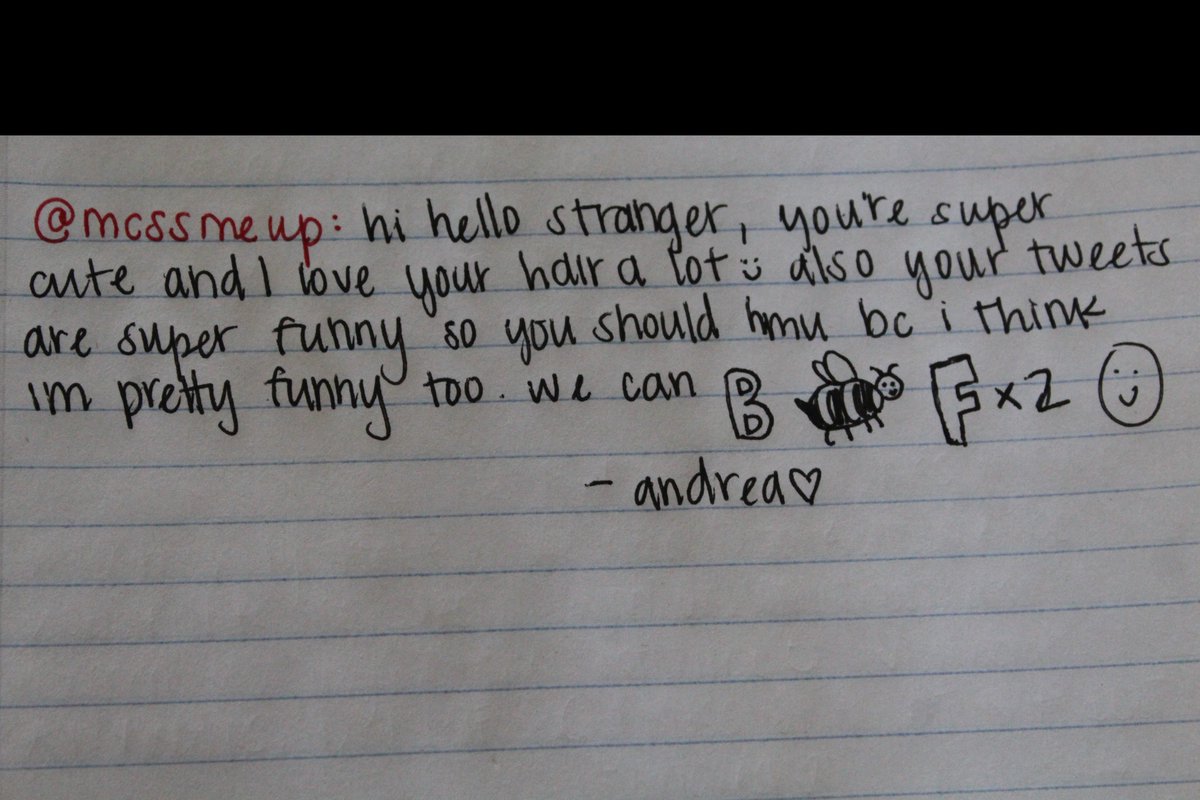 @mcssmeup: hi hello stranger, you're super
cute and I love your hair a lot :) also your tweets
are super funny so you should hmu bc i think
im pretty funny too. we can B F x 2 :)
- andrea♡